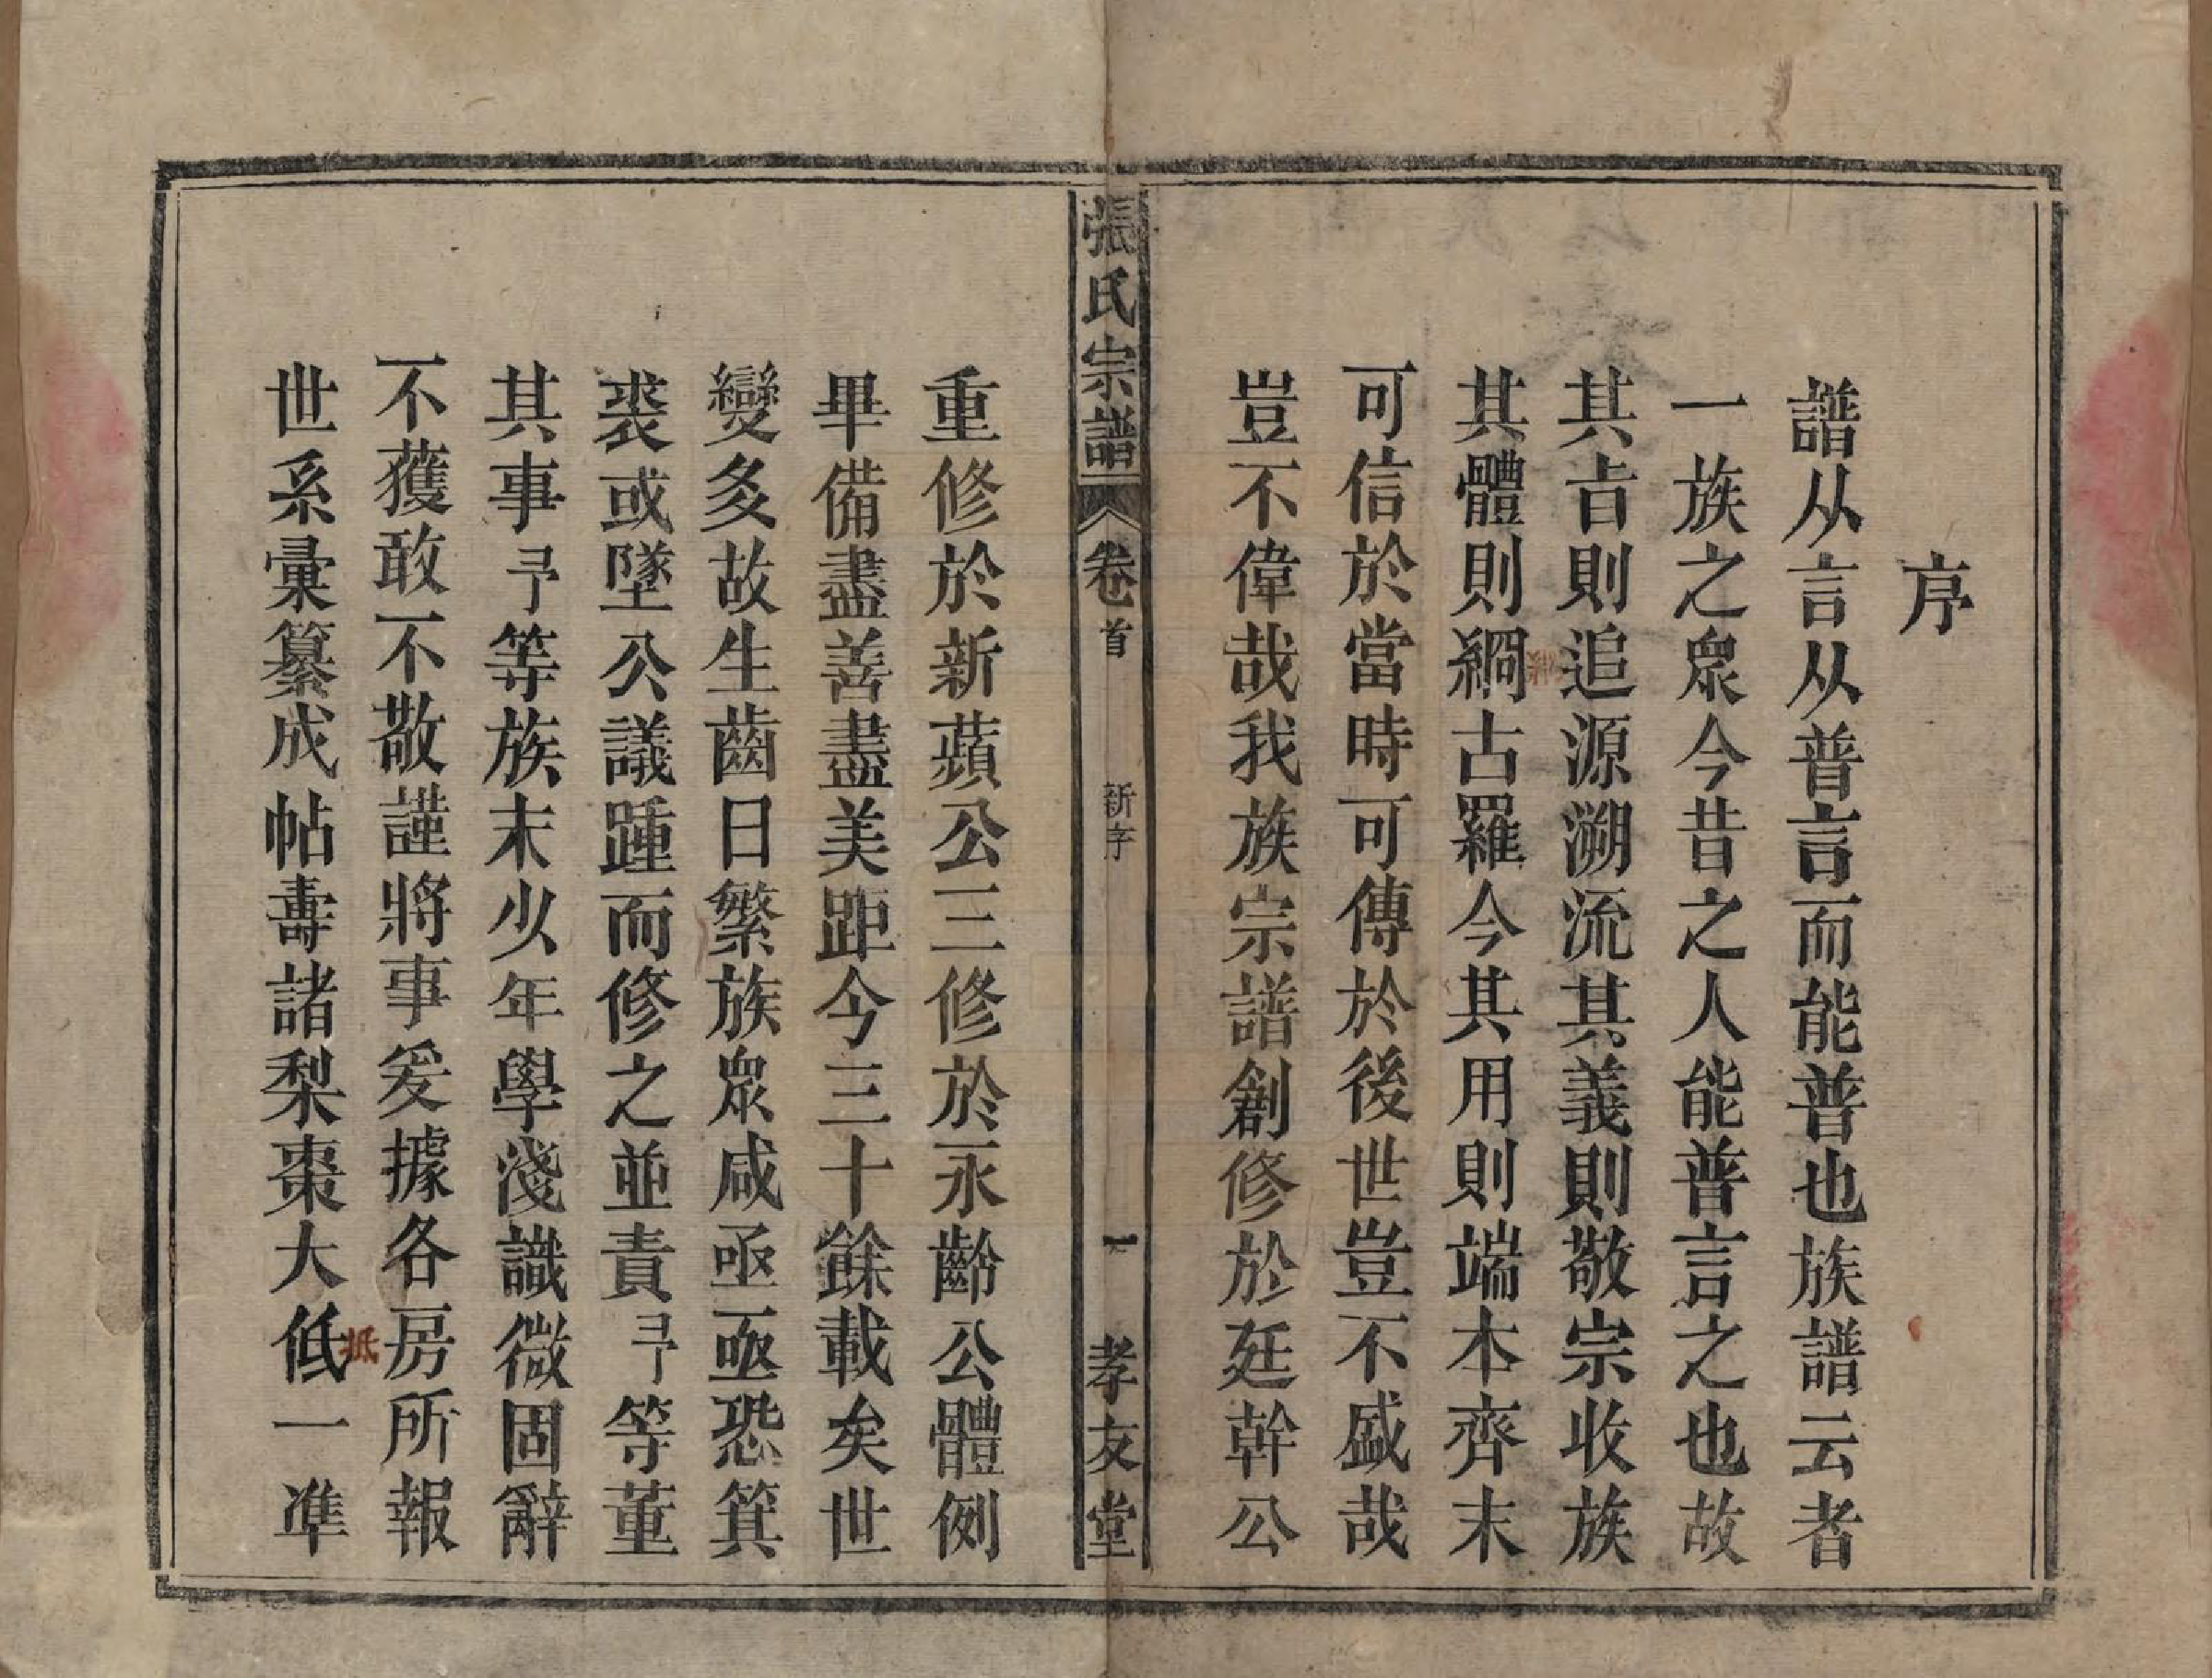 序
譜从言从普言而能普也族譜云者
一族之眾今昔之人能普言之也故
其㫖則追源溯流其義則敬宗收族
其體則綱古羅今其用則端本齊末
可信於當時可傳於後世豈不盛哉
豈不偉哉我族宗譜創修於廷幹公
張氏宗譜
卷首
新序
一
孝友堂
重修於新蘋公三修於永齡公體例
畢備盡善盡美距今三十餘載矣世
變多故生齒日繁族眾咸亟亟恐箕
裘或墜公議踵而修之並責予等董
其事予等族末少年學淺識微固辭
不獲敢不敬謹將事爰據各房所報
世系彙纂成帖壽諸梨棗大低一準
抵